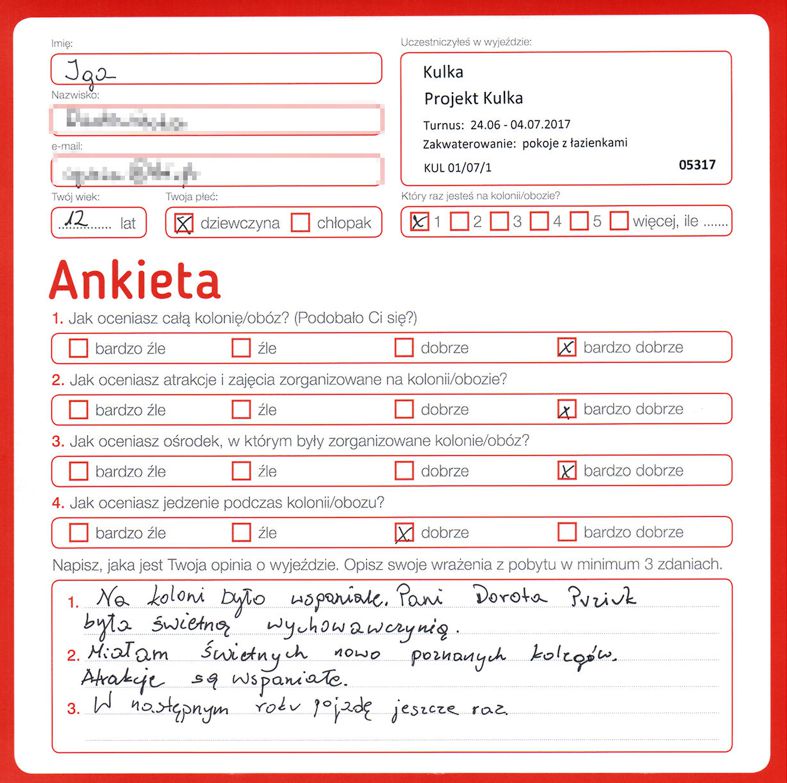 Imię:
Iga
Uczestniczyłeś w wyjeździe:
Kulka
Projekt Kulka
Turnus: 24.06 - 04.07.2017
Zakwaterowanie: pokoje z łazienkami
KUL 01/07/1 05317
Nazwisko:
e-mail:
Twój wiek:
12 lat
Twoja płeć:
x dziewczyna chłopak
Który raz jesteś na kolonii/obozie?
x 1 2 3 4 5 więcej, ile .......
Ankieta
1. Jak oceniasz całą kolonię/obóz? (Podobało Ci się?)
bardzo źle źle dobrze x bardzo dobrze
2. Jak oceniasz atrakcje i zajęcia zorganizowane na kolonii/obozie?
bardzo źle źle dobrze x bardzo dobrze
3. Jak oceniasz ośrodek, w którym były zorganizowane kolonie/obóz?
bardzo źle źle dobrze x bardzo dobrze
4. Jak oceniasz jedzenie podczas kolonii/obozu?
bardzo źle źle x dobrze bardzo dobrze
Napisz, jaka jest Twoja opinia o wyjeździe. Opisz swoje wrażenia z pobytu w minimum 3 zdaniach.
1. Na koloni było wspaniale. Pani Dorota
była świetną wychowawczynią.
2. Miałam świetnych nowo poznanych kolegów.
Atrakcje są wspaniałe.
3. W następnym roku pojadę jeszcze raz.